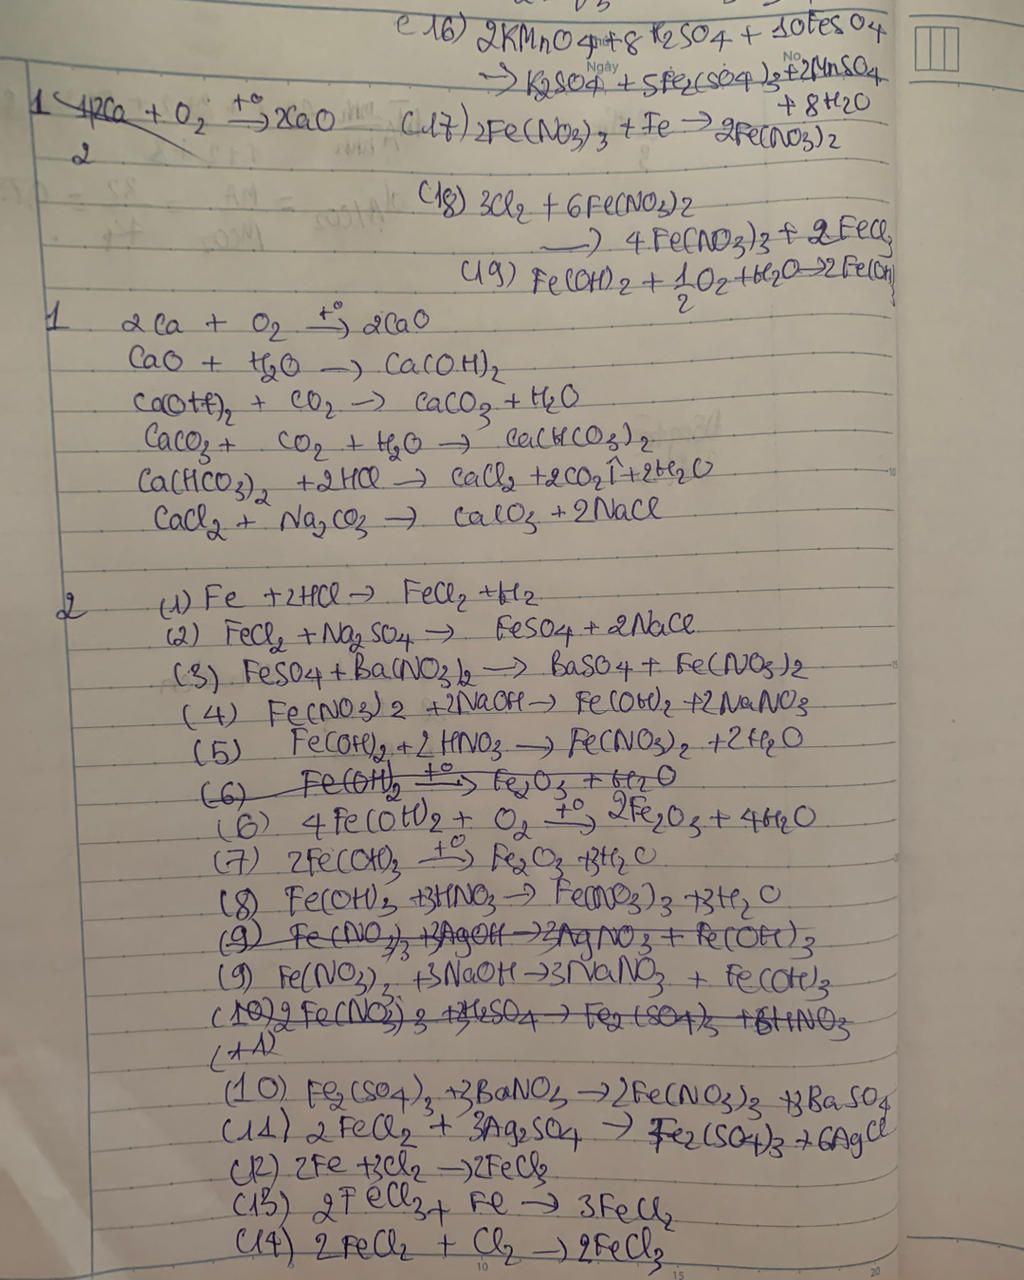 (16) 2KMnO4 + 8 H2SO4 + 10FeSO4
Ngày No
→ K2SO4 + 5Fe2(SO4)3 + 2MnSO4
+ 8H2O
1 2Ca + O2 t°→ 2CaO (17) 2Fe(NO3)3 + Fe → 2Fe(NO3)2
2
(18) 3Cl2 + 6Fe(NO3)2
→ 4Fe(NO3)3 + 2FeCl3
(19) Fe(OH)2 + 1/2 O2 + H2O → 2Fe(OH)
1 2Ca + O2 t°→ 2CaO
CaO + H2O → Ca(OH)2
Ca(OH)2 + CO2 → CaCO3 + H2O
CaCO3 + CO2 + H2O → Ca(HCO3)2
Ca(HCO3)2 + 2HCl → CaCl2 + 2CO2↑ + 2H2O
CaCl2 + Na2CO3 → CaCO3 + 2NaCl
2 (1) Fe + 2HCl → FeCl2 + H2
(2) FeCl2 + Na2SO4 → FeSO4 + 2NaCl
(3) FeSO4 + Ba(NO3)2 → BaSO4 + Fe(NO3)2
(4) Fe(NO3)2 + 2NaOH → Fe(OH)2 + 2NaNO3
(5) Fe(OH)2 + 2HNO3 → Fe(NO3)2 + 2H2O
(6) Fe(OH)2 t°→ Fe2O3 + H2O
(6) 4Fe(OH)2 + O2 t°→ 2Fe2O3 + 4H2O
(7) 2Fe(OH)3 t°→ Fe2O3 + 3H2O
(8) Fe(OH)3 + 3HNO3 → Fe(NO3)3 + 3H2O
(9) Fe(NO3)3 + 3AgOH → 3AgNO3 + Fe(OH)3
(9) Fe(NO3)3 + 3NaOH → 3NaNO3 + Fe(OH)3
(10) 2Fe(NO3)3 + 3H2SO4 → Fe2(SO4)3 + 6HNO3
(11)
(10) Fe2(SO4)3 + 3BaNO3 → 2Fe(NO3)3 + 3BaSO4
(11) 2FeCl2 + 3Ag2SO4 → Fe2(SO4)3 + 6AgCl
(12) 2Fe + 3Cl2 → 2FeCl3
(13) 2FeCl3 + Fe → 3FeCl2
(14) 2FeCl2 + Cl2 → 2FeCl3